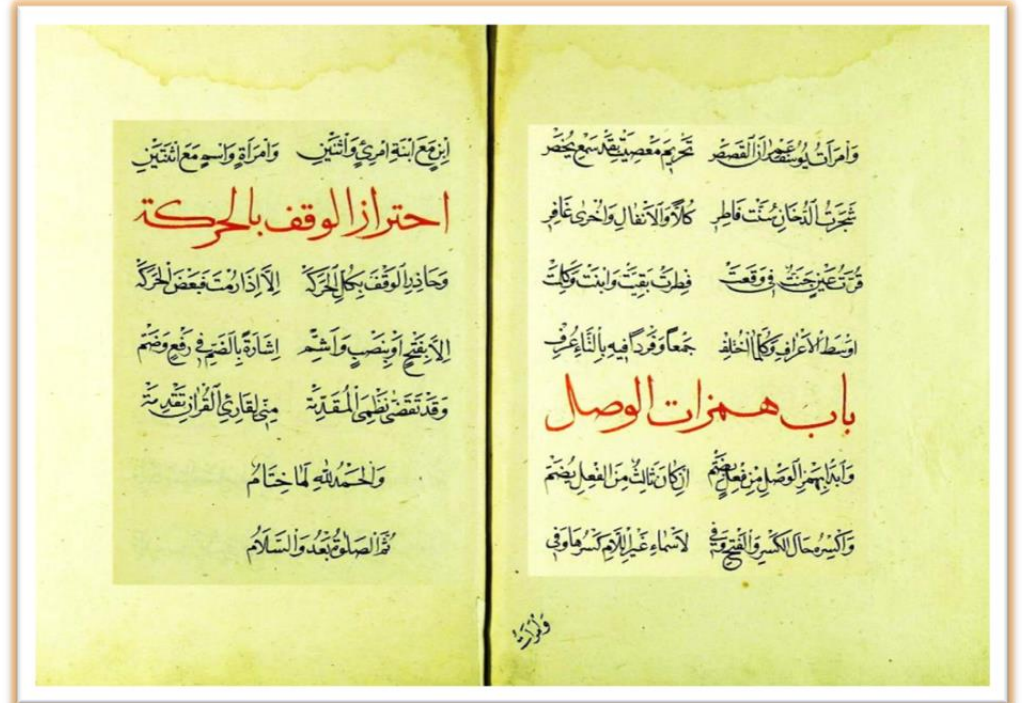 وَامْرَأَتُ يُوسُفَ عِمْرَانَ الْقَصَصْ تَحْرِيمَ مَعْصِيَتْ بِقَدْ سَمِعْ يُخَصْ
شَجَرَتُ الدُّخَانِ سُنَّتْ فَاطِرِ كُلًّا وَالْاَنْفَالِ وَاُخْرٰى غَافِرِ
قُرَّتُ عَيْنٍ جَنَّتٌ فِي وَقَعَتْ فِطْرَتْ بَقِيَّتْ وَابْنَتْ وَكَلِمَتْ
اَوْسَطَ الْاَعْرَافِ وَكُلُّ مَا اخْتُلِفْ جَمْعًا وَفَرْدًا فِيهِ بِالتَّاءِ عُرِفْ
باب همزات الوصل
وَابْدَأْ بِهَمْزِ الْوَصْلِ مِنْ فِعْلٍ بِضَمْ اِنْ كَانَ ثَالِثٌ مِنَ الْفِعْلِ يُضَمْ
وَاكْسِرْهُ حَالَ الْكَسْرِ وَالْفَتْحِ وَفِي لَاسْمَاءِ غَيْرَ اللَّامِ كَسْرُهَا وَفِي
اِبْنٍ مَعَ ابْنَةِ امْرِئٍ وَاثْنَيْنِ وَامْرَأَةٍ وَاسْمٍ مَعَ اثْنَتَيْنِ
احتراز الوقف بالحركة
وَحَاذِرِ الْوَقْفَ بِكُلِّ الْحَرَكَهْ اِلَّا اِذَا رُمْتَ فَبَعْضَ الْحَرَكَهْ
اِلَّا بِفَتْحٍ اَوْ بِنَصْبٍ وَاَشِمْ اِشَارَةً بِالضَّمِّ فِي رَفْعٍ وَضَمْ
وَقَدْ تَقَضَّى نَظْمِيَ الْمُقَدِّمَةْ مِنِّي لِقَارِئِ الْقُرْاٰنِ تَقْدِمَةْ
وَالْحَمْدُ لِلّٰهِ لَهَا خِتَامُ
ثُمَّ الصَّلٰوةُ بَعْدُ وَالسَّلَامُ